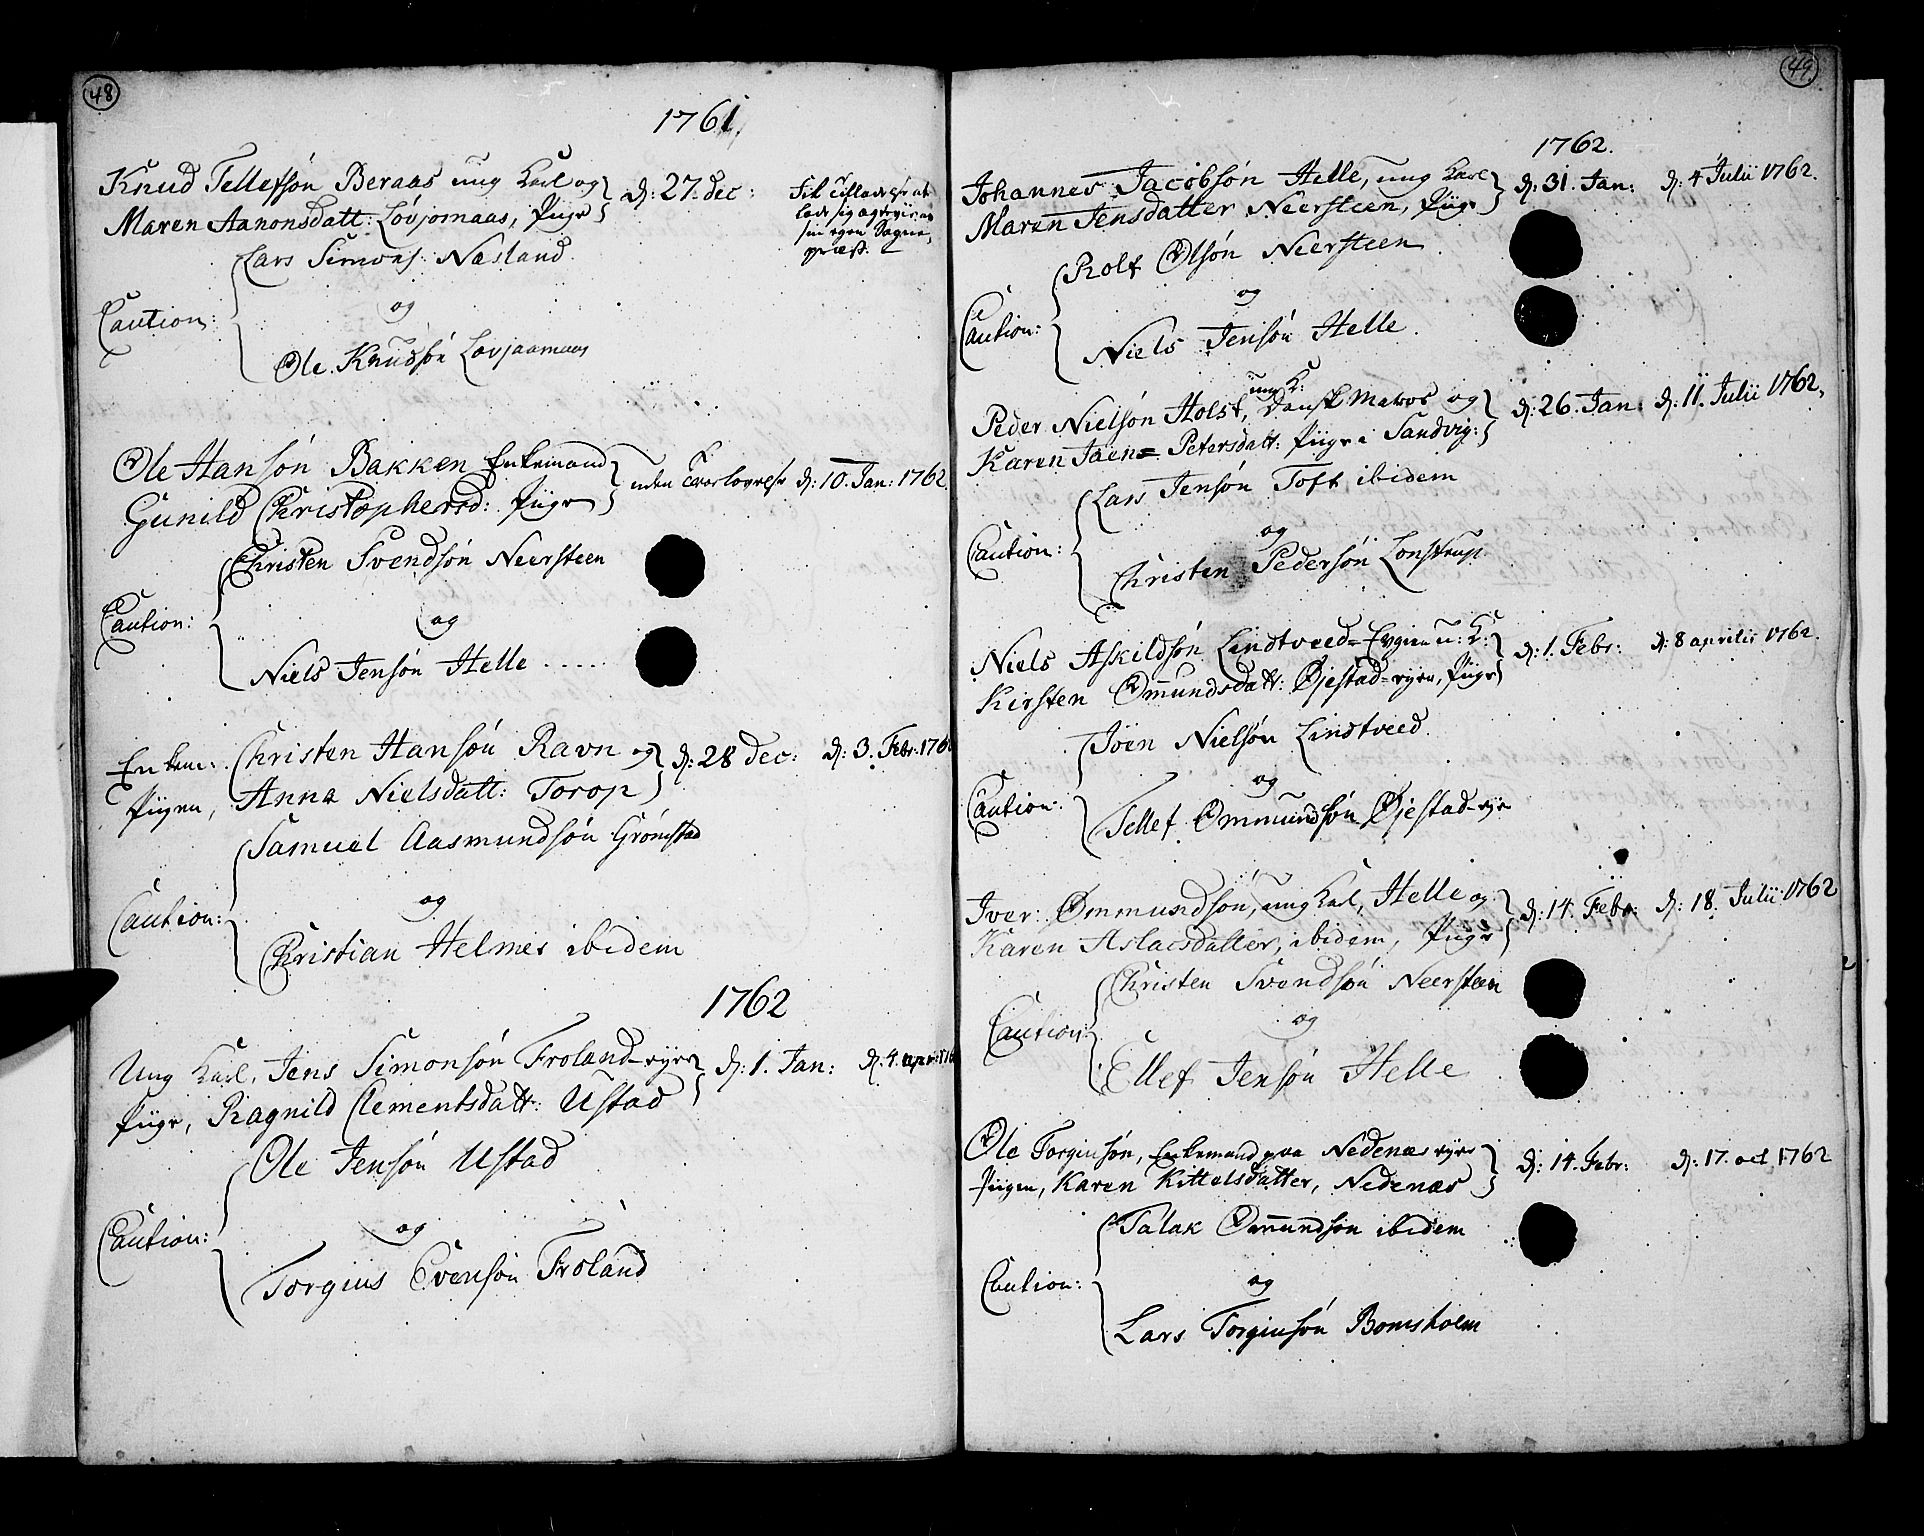 48
1761
Knud Tellefsøn Beraas ung Karl og
Maren Aanonsdatt: Løvjomaas, Piige
d: 27. dec:
Fik tilladelse at
lade sig ægtevie af
sin egen Sogne,
præst.
Lars Simons: Næsland
Caution:
og
Ole Knudsøn Lovjaamaas
Ole Hansøn Bakken Enkemand
Gunild Christophersd: Piige
uden Trolovelse d: 10. Jan: 1762.
Christen Svendsøn Neersteen
Caution:
og
Niels Jensøn Helle
Enkem: Christen Hansøn Ravn og
Piigen, Anna Nielsdatt: Torop
d: 28 dec: d: 3. Febr: 176
Samuel Aasmundsøn Grømstad
Caution:
og
Christian Helmer ibidem
1762
Ung Karl, Jens Simonsøn Froland-eyre
Piige, Ragnild Clementsdatt: Ustad
d: 1. Jan: d: 4. apr:
Ole Jensøn Ustad
Caution:
og
Torgius Evensøn Froland
49
1762.
Johannes Jacobsøn Helle, ung Karl
Maren Jensdatter Neersteen, Piige
d: 31. Jan: d: 4 Julii 1762.
Rolf Olsøn Neersteen
Caution:
og
Niels Jensøn Helle.
ung K:
Peder Nielsøn Holst, Dansk Matros og
Karen Jaen= Petersdatt: Piige i Sandvig:
d: 26. Jan: d: 11. Julii 1762.
Lars Jensøn Toft ibidem
Caution:
og
Christen Pedersøn Lonstrup.
Niels Askildsøn Lindtveed= Eygien u: K:
Kirsten Ommundsdatt: Øjestad-eyen, Piige
d: 1. Febr: d: 8 aprilis 1762.
Joen Nielsøn Lindtveed.
Caution:
og
Tellef Ommundsøn Øjestad-eje
Iver Ommundsøn, ung Karl, Helle og
Karen Aslacsdatter, ibidem, Piige
d: 14. Febr: d: 18. Julii 1762
Christen Svendsøn Neersteen
Caution:
og
Ellef Jensøn Helle
Ole Torgiusøn, Enkemand paa Nedenæs eyre
Piigen, Karen Kittelsdatter, Nedenæs
d: 14. Febr: d: 17. oct 1762
Talak Ommundsøn ibidem
Caution:
og
Lars Torgiusøn Bomsholm